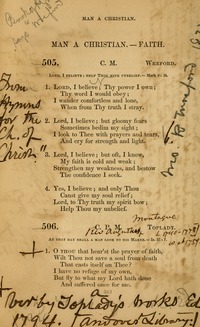 MAN A CHRISTIAN.
MAN A CHRISTIAN.—FAITH.
505. C. M. WREFORD.
LORD, I BELIEVE; HELP THOU MINE UNBELIEF.
1. LORD, I believe; Thy power I own;
Thy word I would obey;
I wander comfortless and lone,
When from Thy truth I stray.
2. Lord, I believe; but gloomy fears
Sometimes bedim my sight;
I look to Thee with prayers and tears,
And cry for strength and light.
3. Lord, I believe; but oft, I know,
My faith is cold and weak;
Strengthen my weakness, and bestow
The confidence I seek.
4. Yes, I believe; and only Thou
Canst give my soul relief;
Lord, to Thy truth my spirit bow;
Help Thou my unbelief.
506. TOPLADY.
Montague
1. O THOU that hear'st the prayer of faith,
Wilt Thou not save a soul from death
That casts itself on Thee?
I have no refuge of my own,
But fly to what my Lord hath done
And suffered once for me.
From
Hymns
for the
Ch. of
Christ"
+ verb by Toplady's Works Ed
1794. (Andover Library)